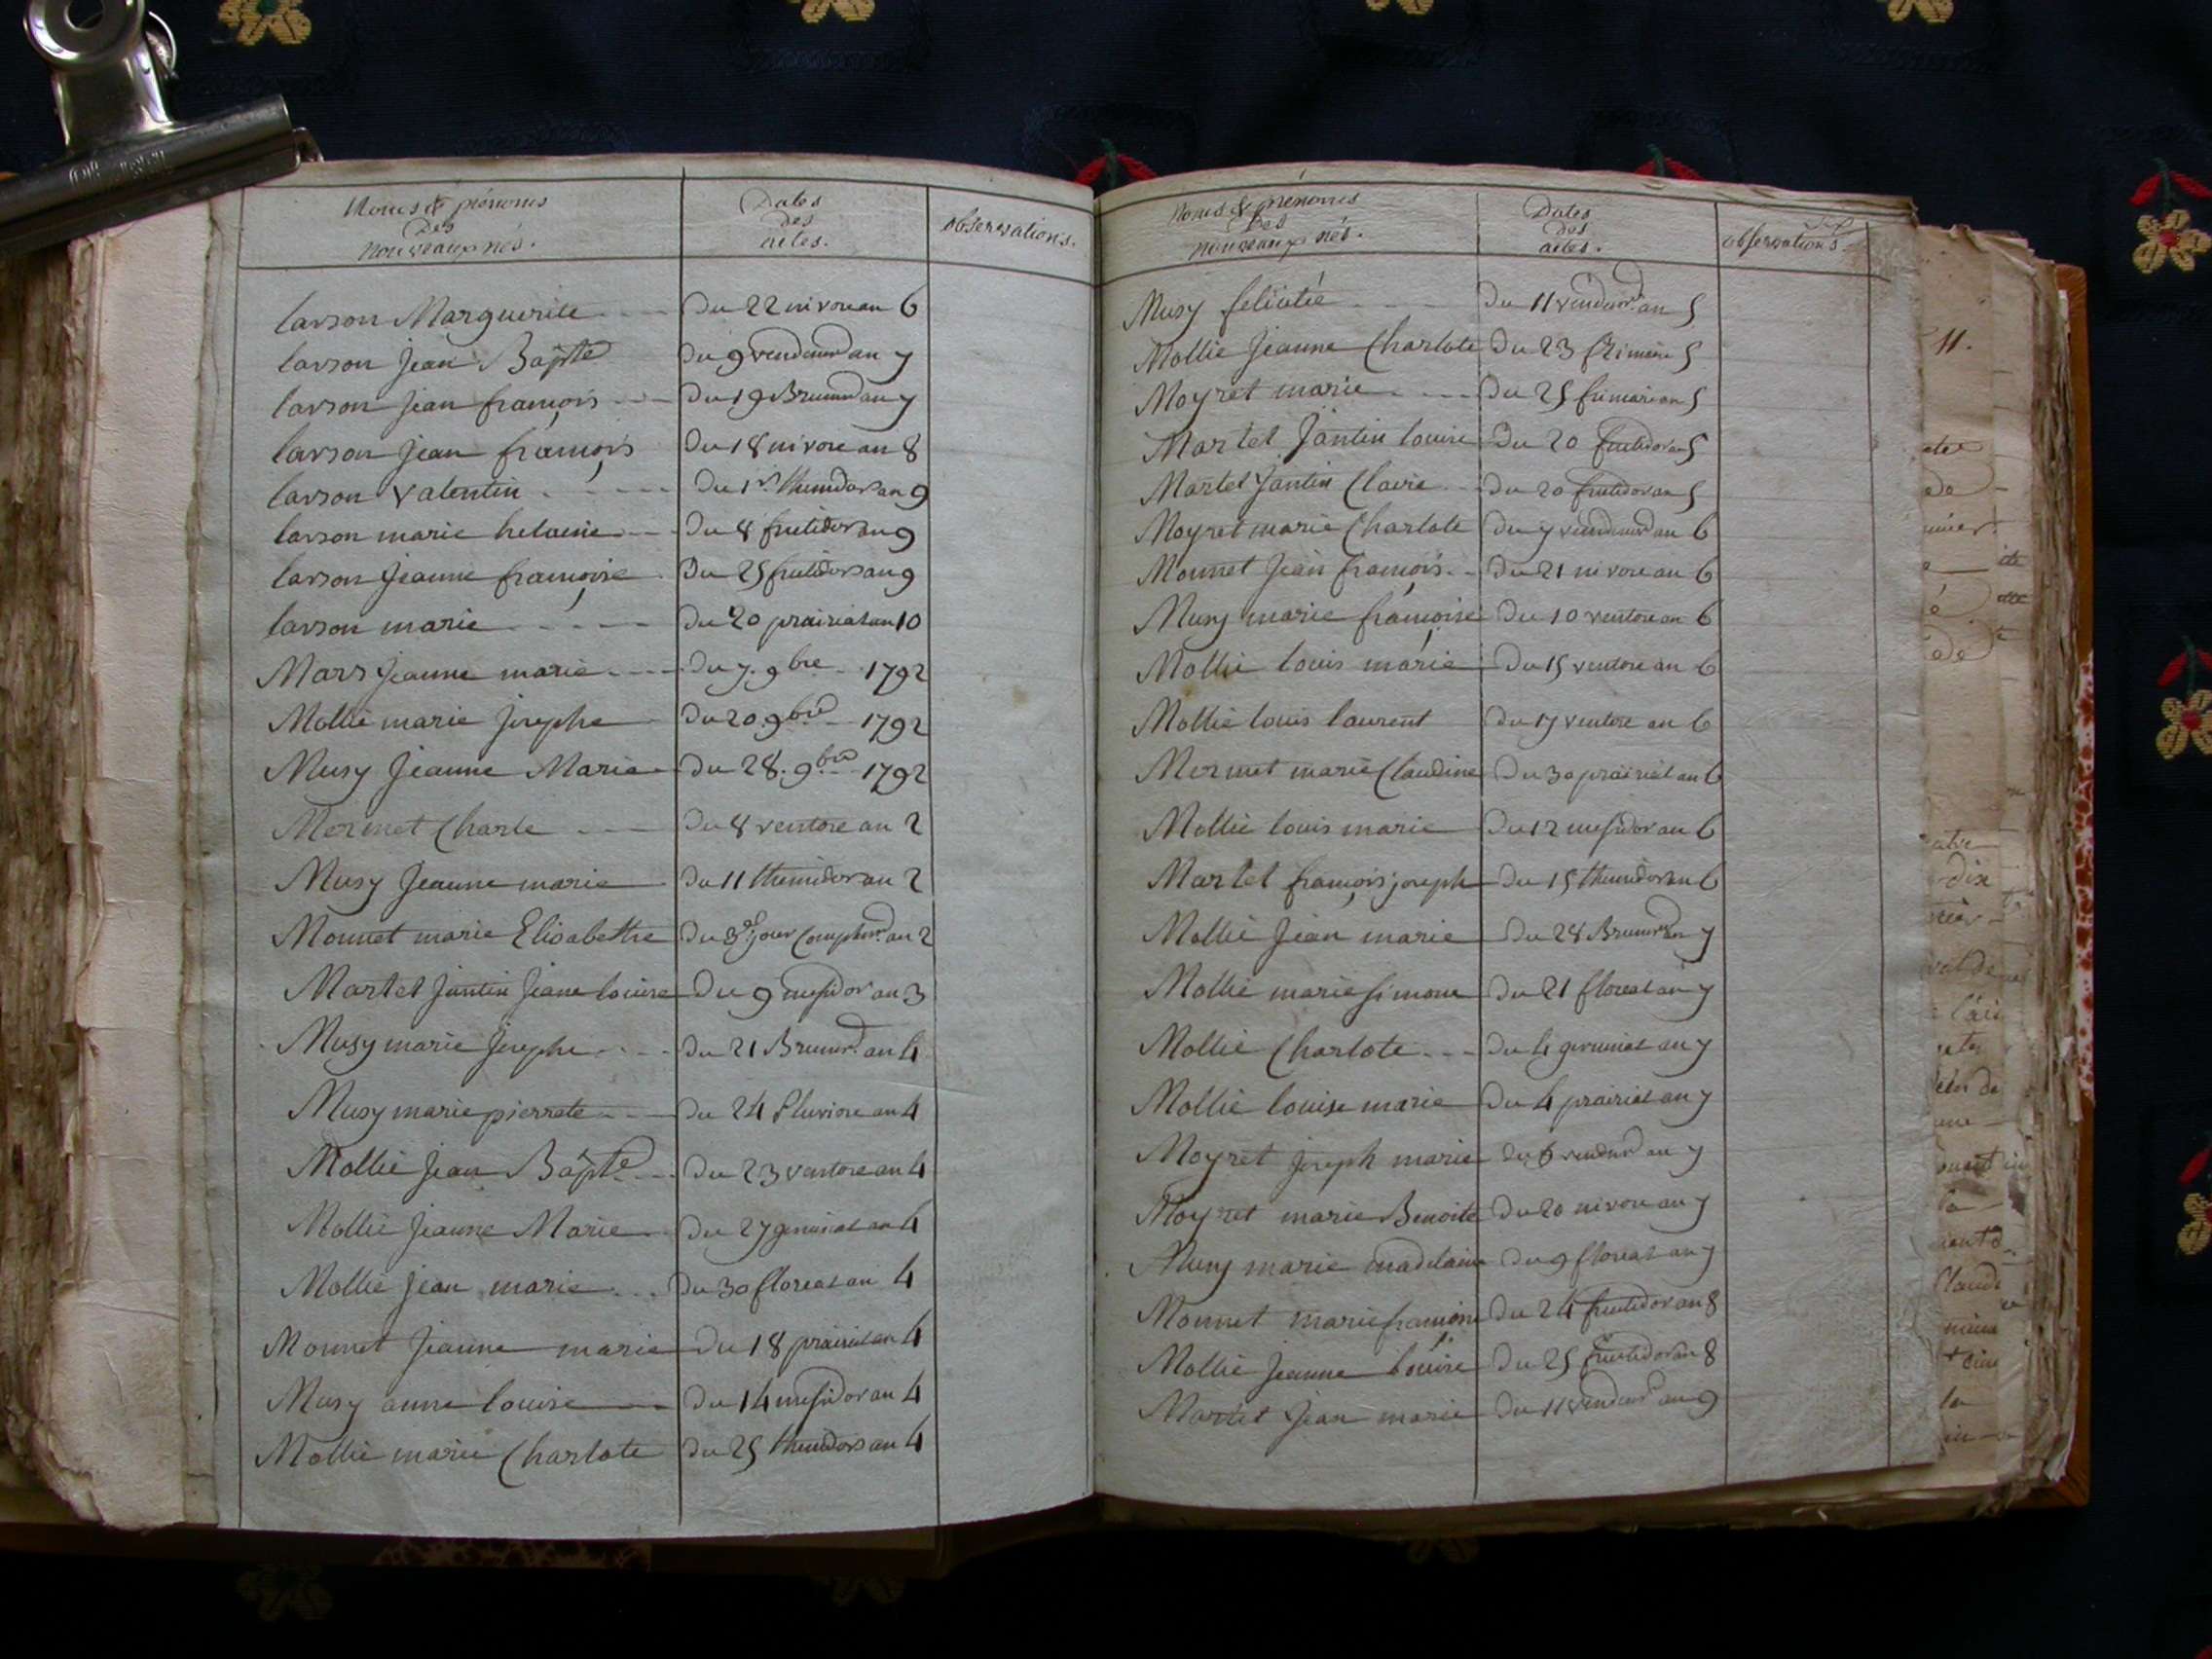 Noms & prénoms
Des
nouveaux nés.
Dates
des
actes.
observations.
larson Marguerite Du 22 nivose an 6
larson Jean Bapte Du 9 vendemre an 7
larson jean françois Du 19 Brumre an 7
larson jean françois Du 18 nivose an 8
larson valentin Du 1er thermidor an 9
larson marie helaine Du 8 fructidor an 9
larson Jeanne françoise Du 25 fructidor an 9
larson marie Du 20 prairial an 10
Marr jeanne marie Du 7. 9bre 1792
Mollie marie josephe Du 20. 9bre 1792
Musy Jeanne Marie Du 28. 9bre 1792
Mermet Charle Du 8 ventose an 2
Musy Jeanne marie Du 11 thermidor an 2
Monnet marie Elisabethe Du 3e jour Complemre an 2
Martet Jantin Jeane louise Du 9 messidor an 3
Musy marie josephe Du 21 Brumre an 4
Musy marie pierrete Du 24 Pluviose an 4
Mollie Jean Bapte Du 23 ventose an 4
Mollie Jeanne Marie Du 27 germinal an 4
Mollie Jean marie Du 30 floreal an 4
Monnet Jeanne marie Du 18 prairial an 4
Musy anne louise Du 14 messidor an 4
Mollie marie Charlote Du 25 thermidor an 4
Noms & prenoms
Des
nouveaux nés.
Dates
des
actes.
observations.
Musy felicité Du 11 vendemre an 5
Mollie Jeanne Charlote Du 23 frimaire 5
Moyret marie Du 25 frimaire an 5
Martet Jantin louise Du 20 fructidor an 5
Martet Jantin Claire Du 20 fructidor an 5
Moyret marie Charlote Du 7 vendemre an 6
Monnet Jean françois Du 21 nivose an 6
Musy marie françoise Du 10 ventose an 6
Mollie louis marie Du 15 ventose an 6
Mollie louis laurent Du 17 ventose an 6
Mermet marie Claudine Du 30 prairial an 6
Mollie louis marie Du 12 messidor an 6
Martet françois joseph Du 15 thermidor an 6
Mollie Jean marie Du 28 Brumre an 7
Mollie marie simone Du 21 floreal an 7
Mollie Charlote Du 4 germinal an 7
Mollie louise marie Du 4 prairial an 7
Moyret joseph marie Du 6 vendemre an 7
Moyret marie Benoite Du 20 nivose an 7
Musy marie madelaine Du 9 floreal an 7
Monnet marie françoise Du 24 fructidor an 8
Mollie Jeanne louise Du 25 fructidor an 8
Martet Jean marie Du 11 vendemre an 9
11.
dix